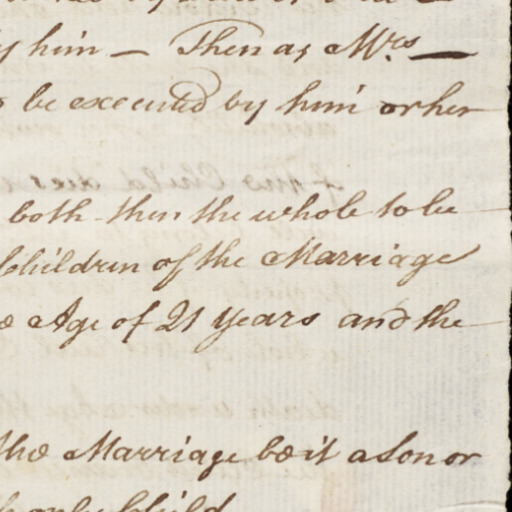 him — Then as Mrs —
be executed by him or her
both then the whole to be
Children of the Marriage
Age of 21 Years and the
the Marriage be it a Son or
only Child